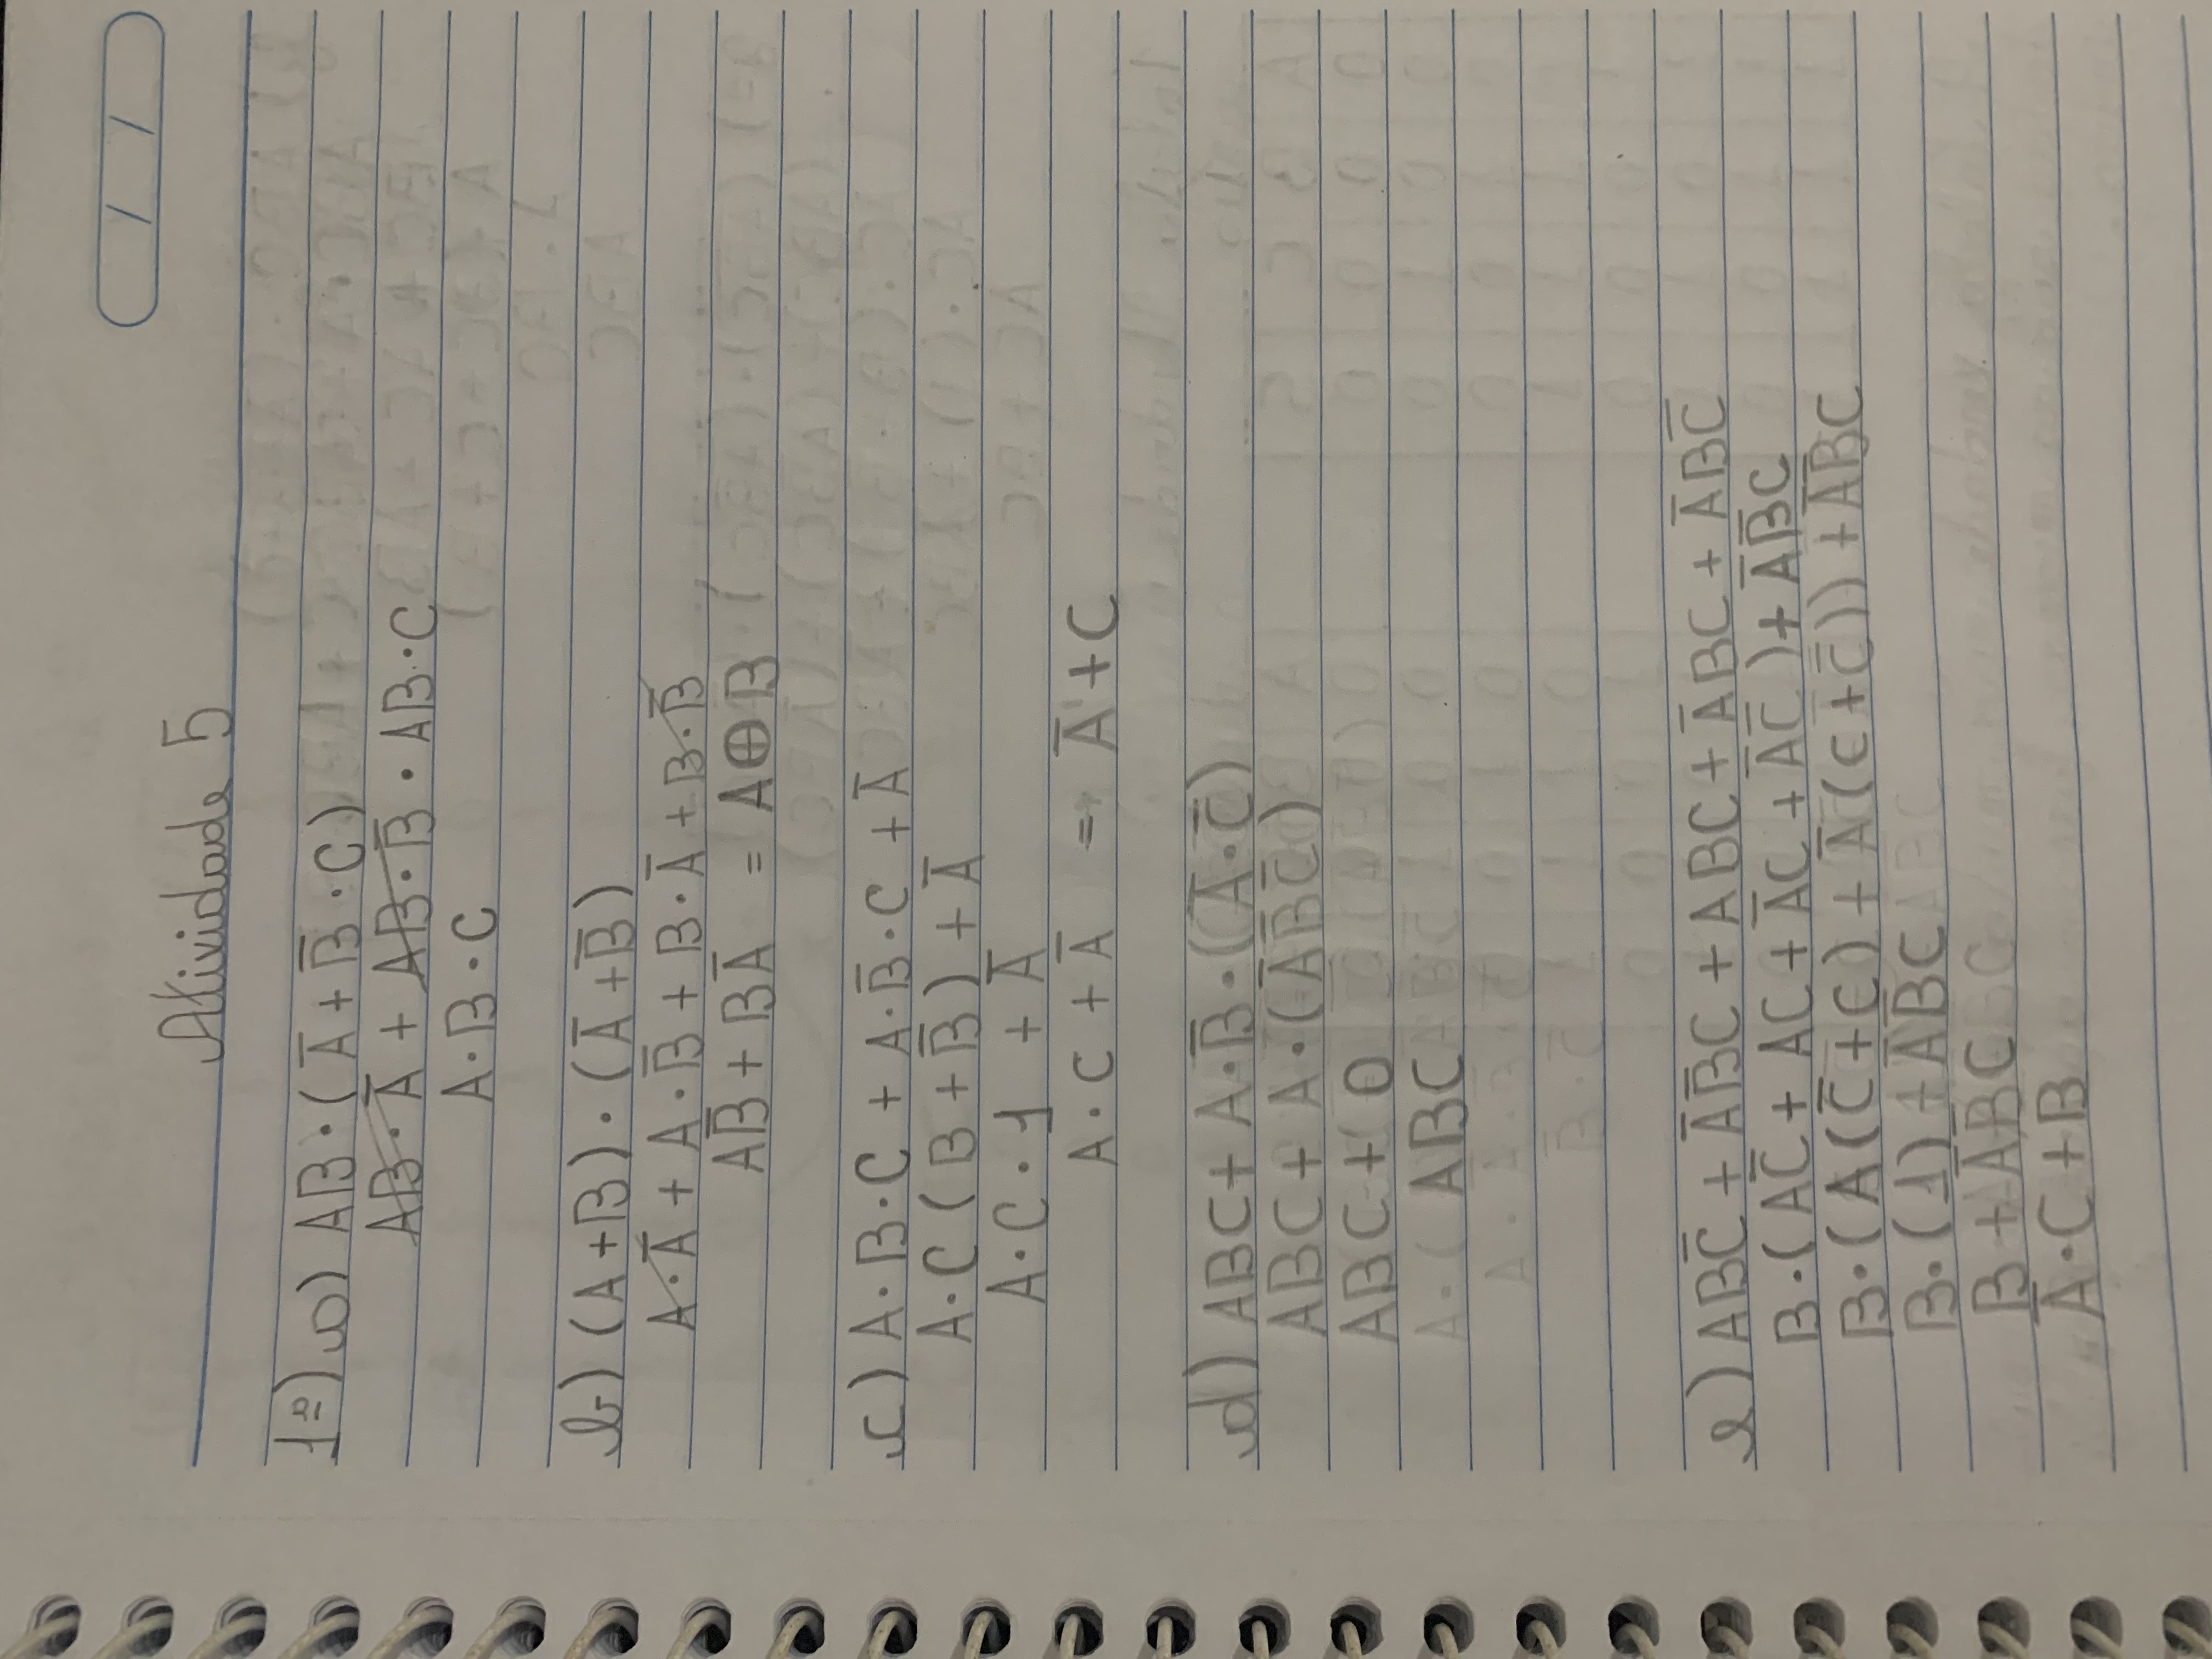 / /
Atividade 5
1ª) a) AB·(A̅ + B̅ · C)
AB · A̅ + AB · B̅ · AB · C
A · B · C
b) (A + B) · (A̅ + B̅)
A · A̅ + A · B̅ + B · A̅ + B · B̅
AB̅ + BA̅ = A⊕B
c) A · B · C + A · B̅ · C + A̅
A · C (B + B̅) + A̅
A · C · 1 + A̅
A · C + A̅ = A̅ + C
d) ABC + A · B̅ · (A̅ · C̅)
ABC + A · (A̅B̅C̅)
ABC + 0
ABC
e) ABC̅ + A̅B̅C + ABC + A̅BC + A̅BC̅
B · (AC̅ + AC + A̅C + A̅C̅) + A̅B̅C
B · (A(C̅ + C) + A̅(C + C̅)) + A̅B̅C
B · (1) + A̅B̅C
B + A̅B̅C
A̅ · C + B